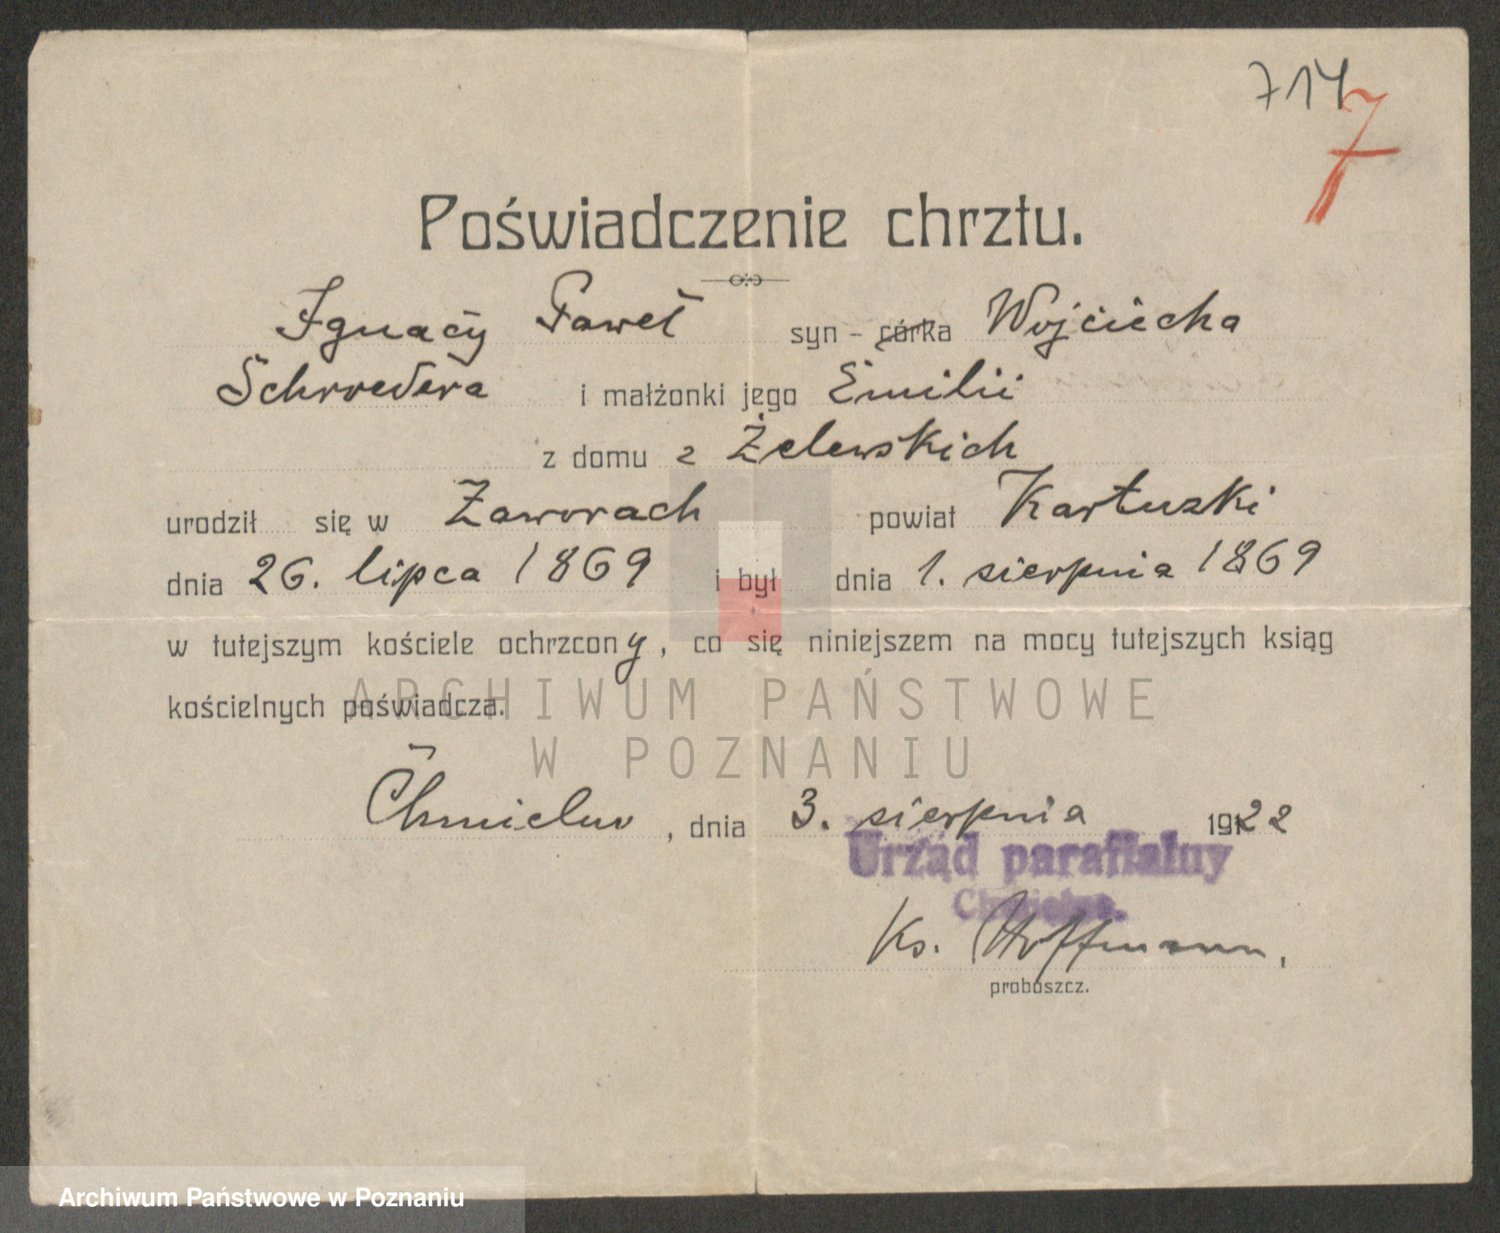 714
7
Poświadczenie chrztu.
Ignacy Paweł syn - córka Wojciecha
Schroedera i małżonki jego Emilii
z domu z Żelewskich
urodził się w Zaworach powiat Kartuski
dnia 26. lipca 1869 i był dnia 1. sierpnia 1869
w tutejszym kościele ochrzcony, co się niniejszem na mocy tutejszych ksiąg
kościelnych poświadcza.
ARCHIWUM PAŃSTWOWE
W POZNANIU
Chmielno, dnia 3. sierpnia 1922
Urząd parafialny
Chmielno.
Ks. Hoffmann.
proboszcz.
Archiwum Państwowe w Poznaniu